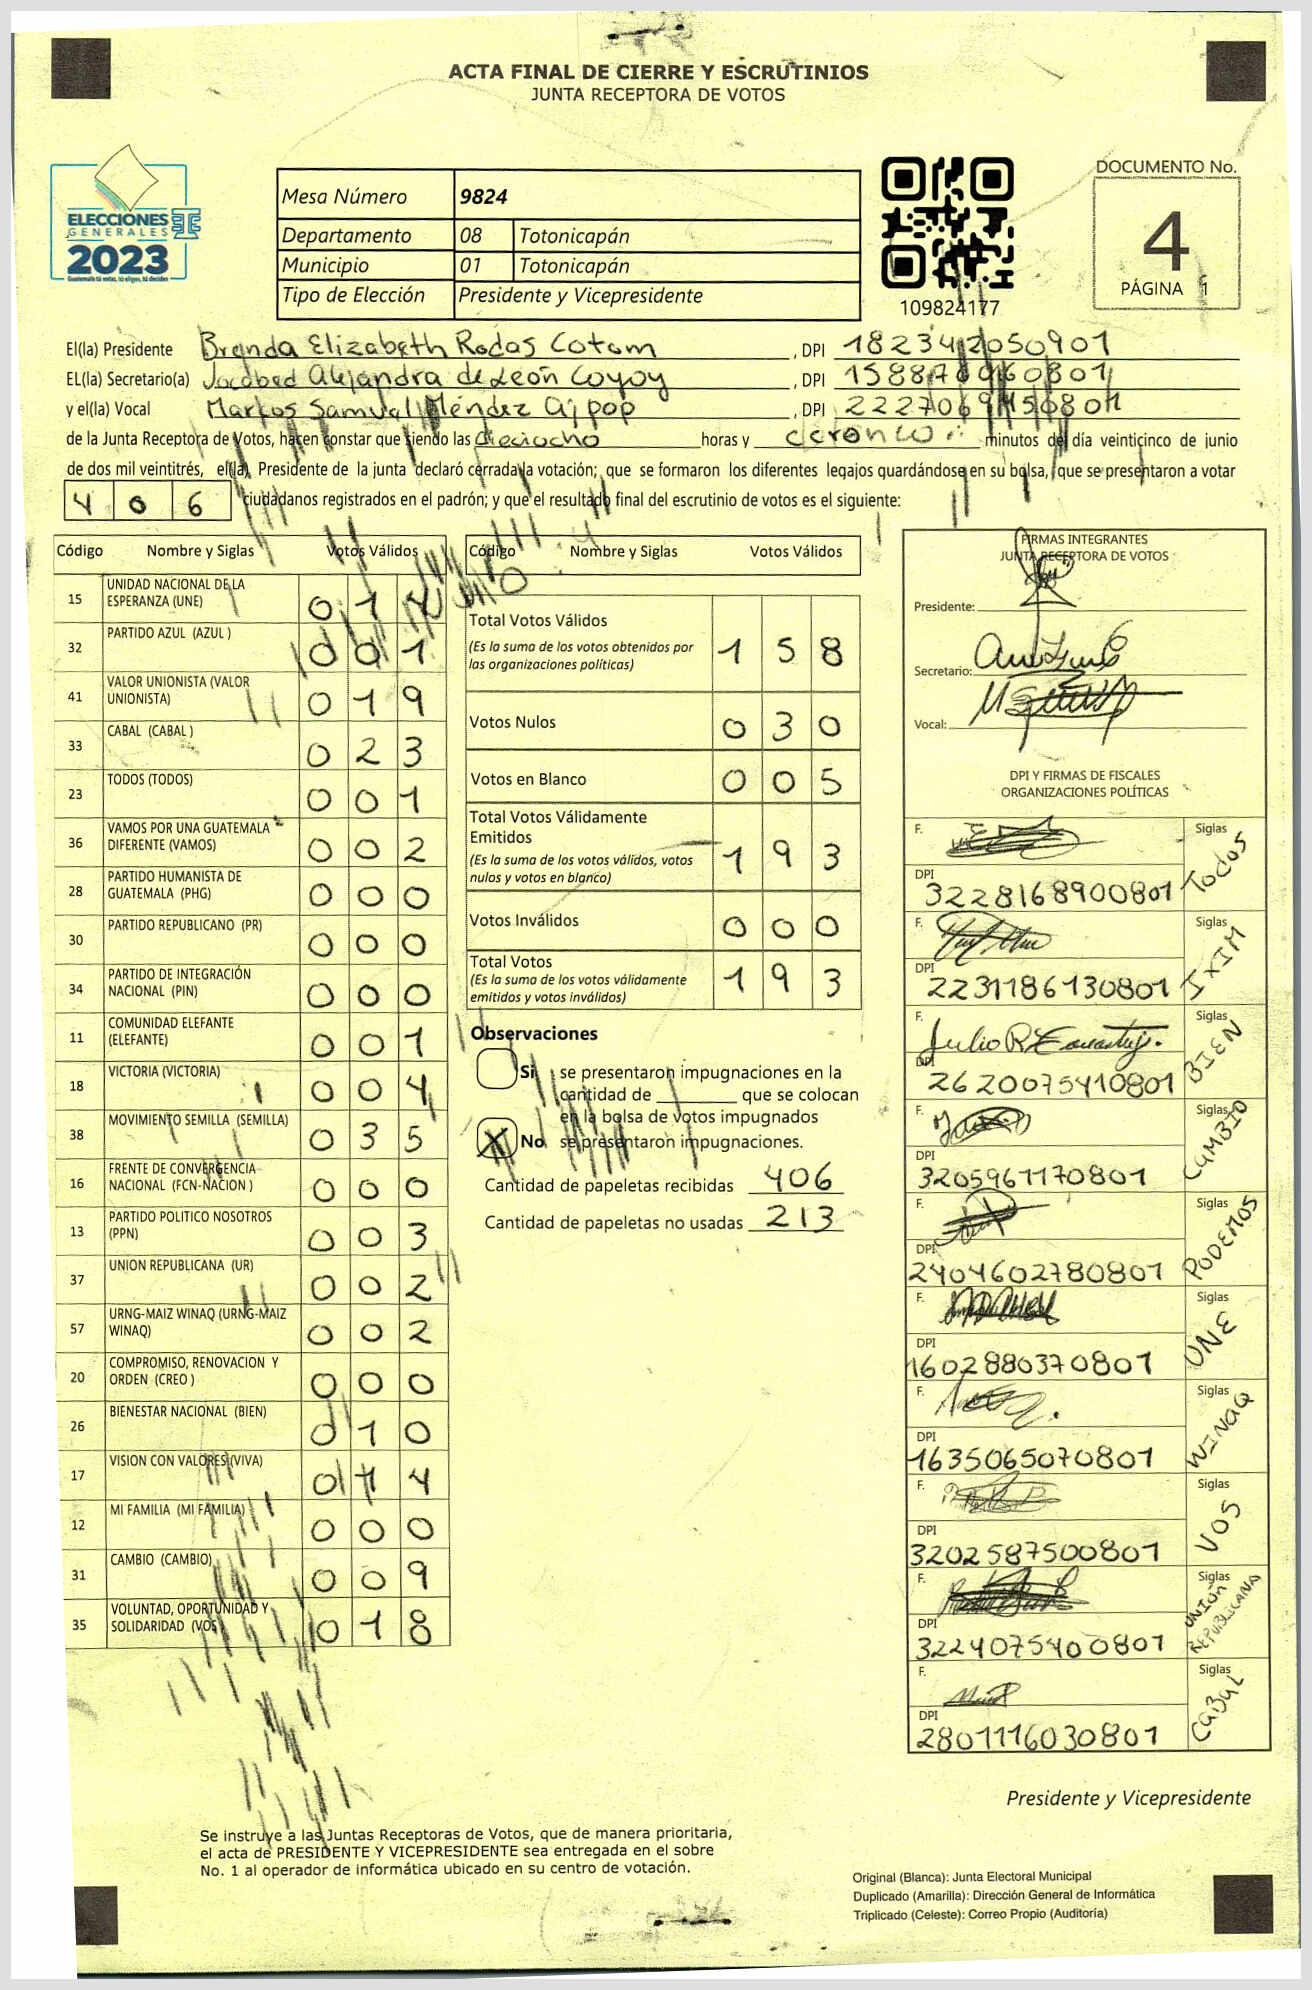 ACTA FINAL DE CIERRE Y ESCRUTINIOS
JUNTA RECEPTORA DE VOTOS
ELECCIONES
GENERALES
2023
Guatemala tú votas, tú eliges, tú decides
Mesa Número 9824
Departamento 08 Totonicapán
Municipio 01 Totonicapán
Tipo de Elección Presidente y Vicepresidente
109824177
DOCUMENTO No.
4
PÁGINA 1
El(la) Presidente Brenda Elizabeth Rodas Cotom, DPI 1823412050901
EL(la) Secretario(a) Jacobed Alejandra de León Coyoy, DPI 1588780960801
y el(la) Vocal Marcos Samuel Méndez Ajpop, DPI 2227069450801
de la Junta Receptora de Votos, hacen constar que siendo las dieciocho horas y minutos del día veinticinco de junio
de dos mil veintitrés, el(la) Presidente de la junta declaró cerrada la votación; que se formaron los diferentes legajos guardándose en su bolsa, que se presentaron a votar
406 ciudadanos registrados en el padrón; y que el resultado final del escrutinio de votos es el siguiente:
Código Nombre y Siglas Votos Válidos
15 UNIDAD NACIONAL DE LA ESPERANZA (UNE) 0 1
32 PARTIDO AZUL (AZUL ) 0 0 1
41 VALOR UNIONISTA (VALOR UNIONISTA) 0 1 9
33 CABAL (CABAL ) 0 2 3
23 TODOS (TODOS) 0 0 1
36 VAMOS POR UNA GUATEMALA DIFERENTE (VAMOS) 0 0 2
28 PARTIDO HUMANISTA DE GUATEMALA (PHG) 0 0 0
30 PARTIDO REPUBLICANO (PR) 0 0 0
34 PARTIDO DE INTEGRACIÓN NACIONAL (PIN) 0 0 0
11 COMUNIDAD ELEFANTE (ELEFANTE) 0 0 1
18 VICTORIA (VICTORIA) 0 0 4
38 MOVIMIENTO SEMILLA (SEMILLA) 0 3 5
16 FRENTE DE CONVERGENCIA NACIONAL (FCN-NACION ) 0 0 0
13 PARTIDO POLITICO NOSOTROS (PPN) 0 0 3
37 UNION REPUBLICANA (UR) 0 0 2
57 URNG-MAIZ WINAQ (URNG-MAIZ WINAQ) 0 0 2
20 COMPROMISO, RENOVACION Y ORDEN (CREO ) 0 0 0
26 BIENESTAR NACIONAL (BIEN) 0 1 0
17 VISION CON VALORES (VIVA) 0 1 4
12 MI FAMILIA (MI FAMILIA) 0 0 0
31 CAMBIO (CAMBIO) 0 0 9
35 VOLUNTAD, OPORTUNIDAD Y SOLIDARIDAD (VOS ) 0 1 8
Código Nombre y Siglas Votos Válidos
Total Votos Válidos 1 5 8
(Es la suma de los votos obtenidos por
las organizaciones políticas)
Votos Nulos 0 3 0
Votos en Blanco 0 0 5
Total Votos Válidamente
Emitidos 1 9 3
(Es la suma de los votos válidos, votos
nulos y votos en blanco)
Votos Inválidos 0 0 0
Total Votos 1 9 3
(Es la suma de los votos válidamente
emitidos y votos inválidos)
Observaciones
Si se presentaron impugnaciones en la
cantidad de ________ que se colocan
en la bolsa de votos impugnados
X No se presentaron impugnaciones.
Cantidad de papeletas recibidas 406
Cantidad de papeletas no usadas 213
FIRMAS INTEGRANTES
JUNTA RECEPTORA DE VOTOS
Presidente:
Secretario:
Vocal:
DPI Y FIRMAS DE FISCALES
ORGANIZACIONES POLÍTICAS
F. Siglas Todos
DPI 3228168900801
F. Siglas IXIM
DPI 2231186130801
F. Siglas BIEN
DPI 2620075410801
F. Siglas CAMBIO
DPI 3205961170801
F. Siglas PODEMOS
DPI 2404602780801
F. Siglas UNE
DPI 1602880370801
F. Siglas WINAQ
DPI 1635065070801
F. Siglas VOS
DPI 3202587500801
F. Siglas UNIÓN REPUBLICANA
DPI 3224075400801
F. Siglas CABAL
DPI 2801116030801
Presidente y Vicepresidente
Se instruye a las Juntas Receptoras de Votos, que de manera prioritaria,
el acta de PRESIDENTE Y VICEPRESIDENTE sea entregada en el sobre
No. 1 al operador de informática ubicado en su centro de votación.
Original (Blanca): Junta Electoral Municipal
Duplicado (Amarilla): Dirección General de Informática
Triplicado (Celeste): Correo Propio (Auditoría)